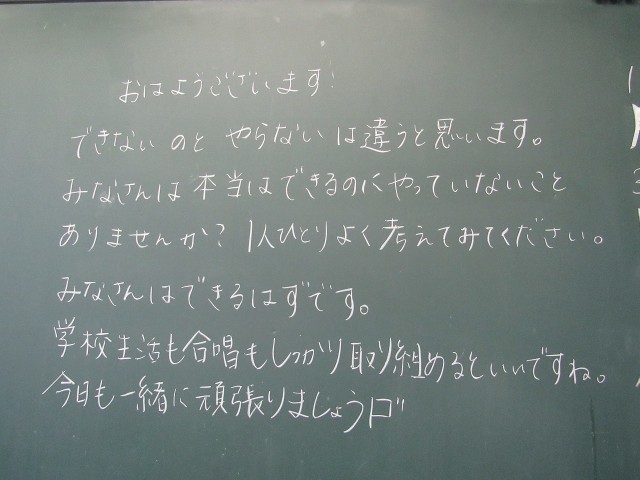 おはようございます!
できないのと やらないは違うと思います。
みなさんは本当はできるのにやっていないこと
ありませんか? 1人ひとりよく考えてみてください。
みなさんはできるはずです。
学校生活も合唱もしっかり取り組めるといいですね。
今日も一緒に頑張りましょう